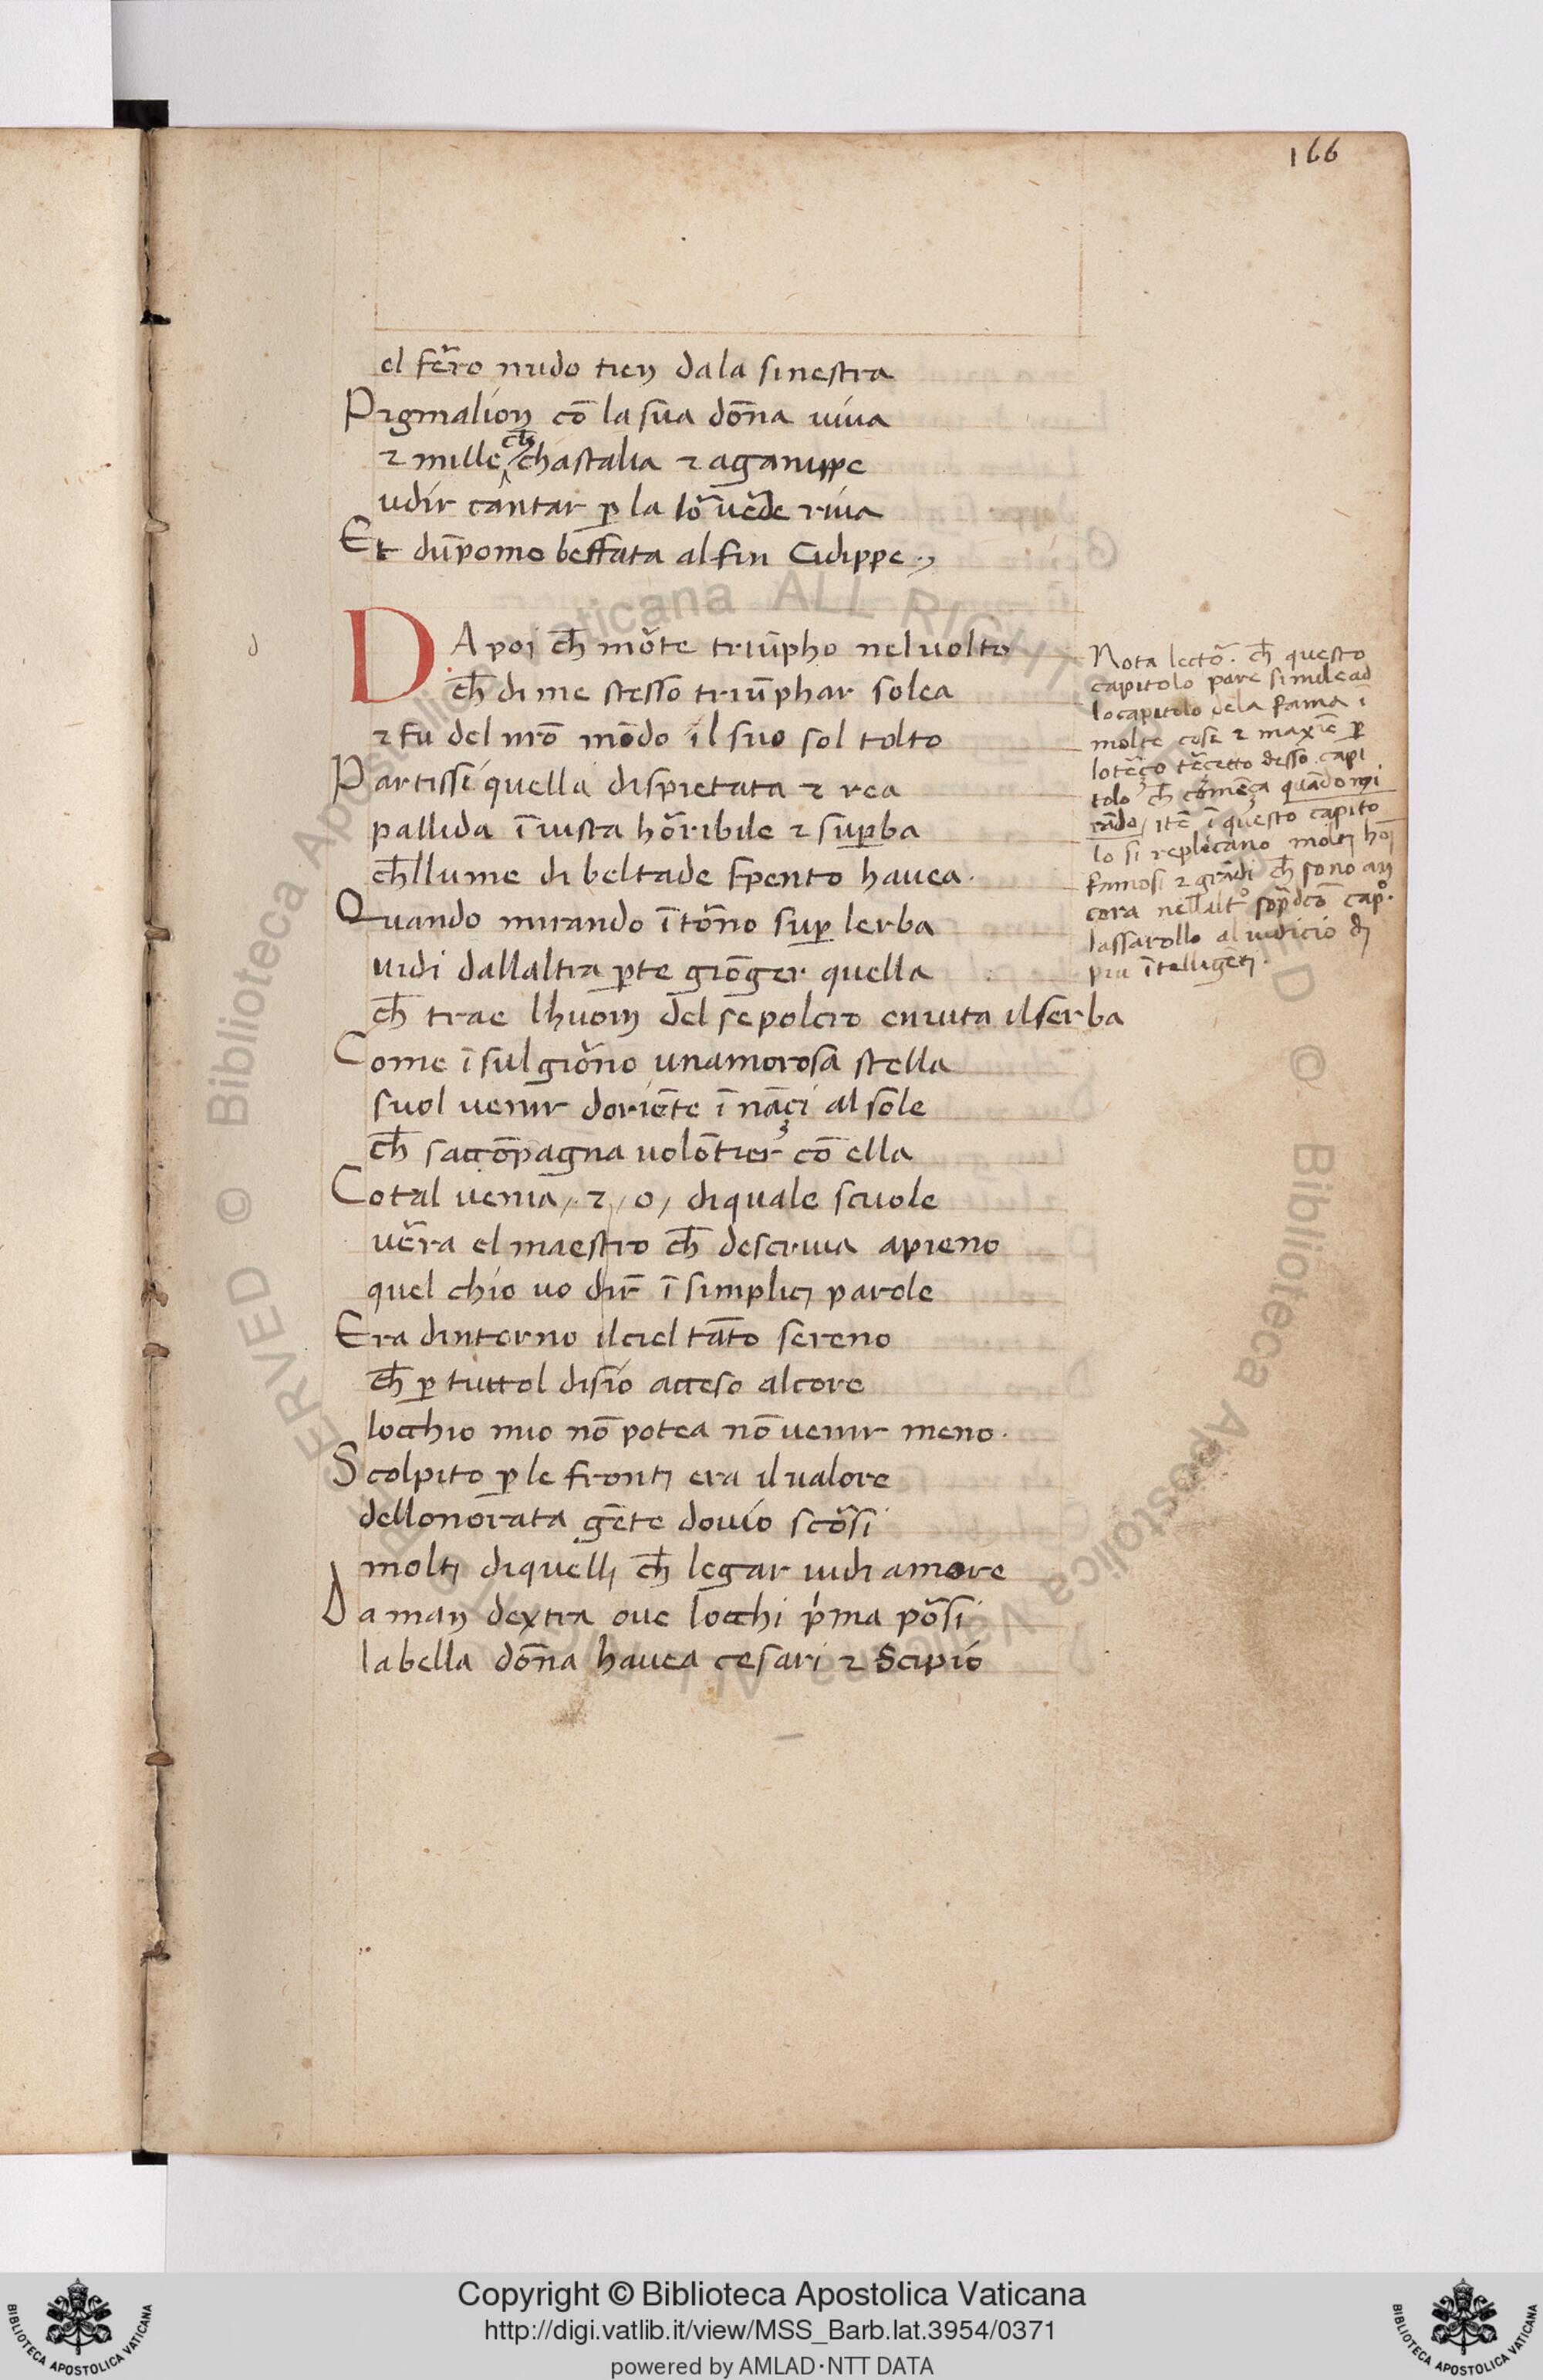 166
el fer̃o nudo tien dala sinestra
Pigmalion cõ la sua dõna uiua
⁊ mille ch̃ chastalia ⁊ aganippe
udir cantar ꝑ la lor̃ uer̃de riua
Et dũpomo beffata al fin Cidippe
DA poi ch̃ mor̃te triũpho nel uolto
ch̃ di me stesso triũphar solea
⁊ fu del nrõ mõdo il suo sol tolto
Partissi quella dispietata ⁊ rea
pallida ĩ uista hor̃ribile ⁊ suꝑba
ch̃llume di beltade spento hauea.
Quando mirando ĩ tor̃no suꝑ lerba
uidi dallaltra ꝑte giõger quella
ch̃ trae lhuom del sepolcro en uita il serba
Come ĩ sul gior̃no unamorosa stella
suol uenir doriẽte ĩ nãçi al sole
ch̃ saccõpagna uolõtier cõ ella
Cotal uenia, ⁊, o, di quale scuole
uer̃ra el maestro ch̃ descriua apieno
quel chio uo dir̃ ĩ simplici parole
Era dintorno il ciel tãto sereno
ch̃ ꝑ tuttol disio acceso al core
locchio mio nõ potea nõ uenir meno.
Scolpito ꝑ le fronti era il ualore
dellonorata gẽte douio scor̃si
molti di quelli ch̃ legar uidi amore
Da man dextra oue locchi pͥma por̃si
la bella dõna hauea cesari ⁊ Scipio
Nota lector̃. ch̃ questo
capitolo pare simile ad
lo capitolo dela fama ĩ
molte cose ⁊ maxiẽ ꝑ
lo ter̃ço ter̃cetto desso capi
tolo ch̃ comẽça quãdo mi
rãdo, itẽ ĩ questo capito
lo si replicano molti hoĩ
famosi ⁊ grãdi ch̃ sono an
cora nellalt° sopͣdcõ cap°.
lassarollo al iudicio di
piu ĩtelligẽti.
Copyright © Biblioteca Apostolica Vaticana
http://digi.vatlib.it/view/MSS_Barb.lat.3954/0371
powered by AMLAD·NTT DATA
BIBLIOTECA APOSTOLICA VATICANA
BIBLIOTECA APOSTOLICA VATICANA